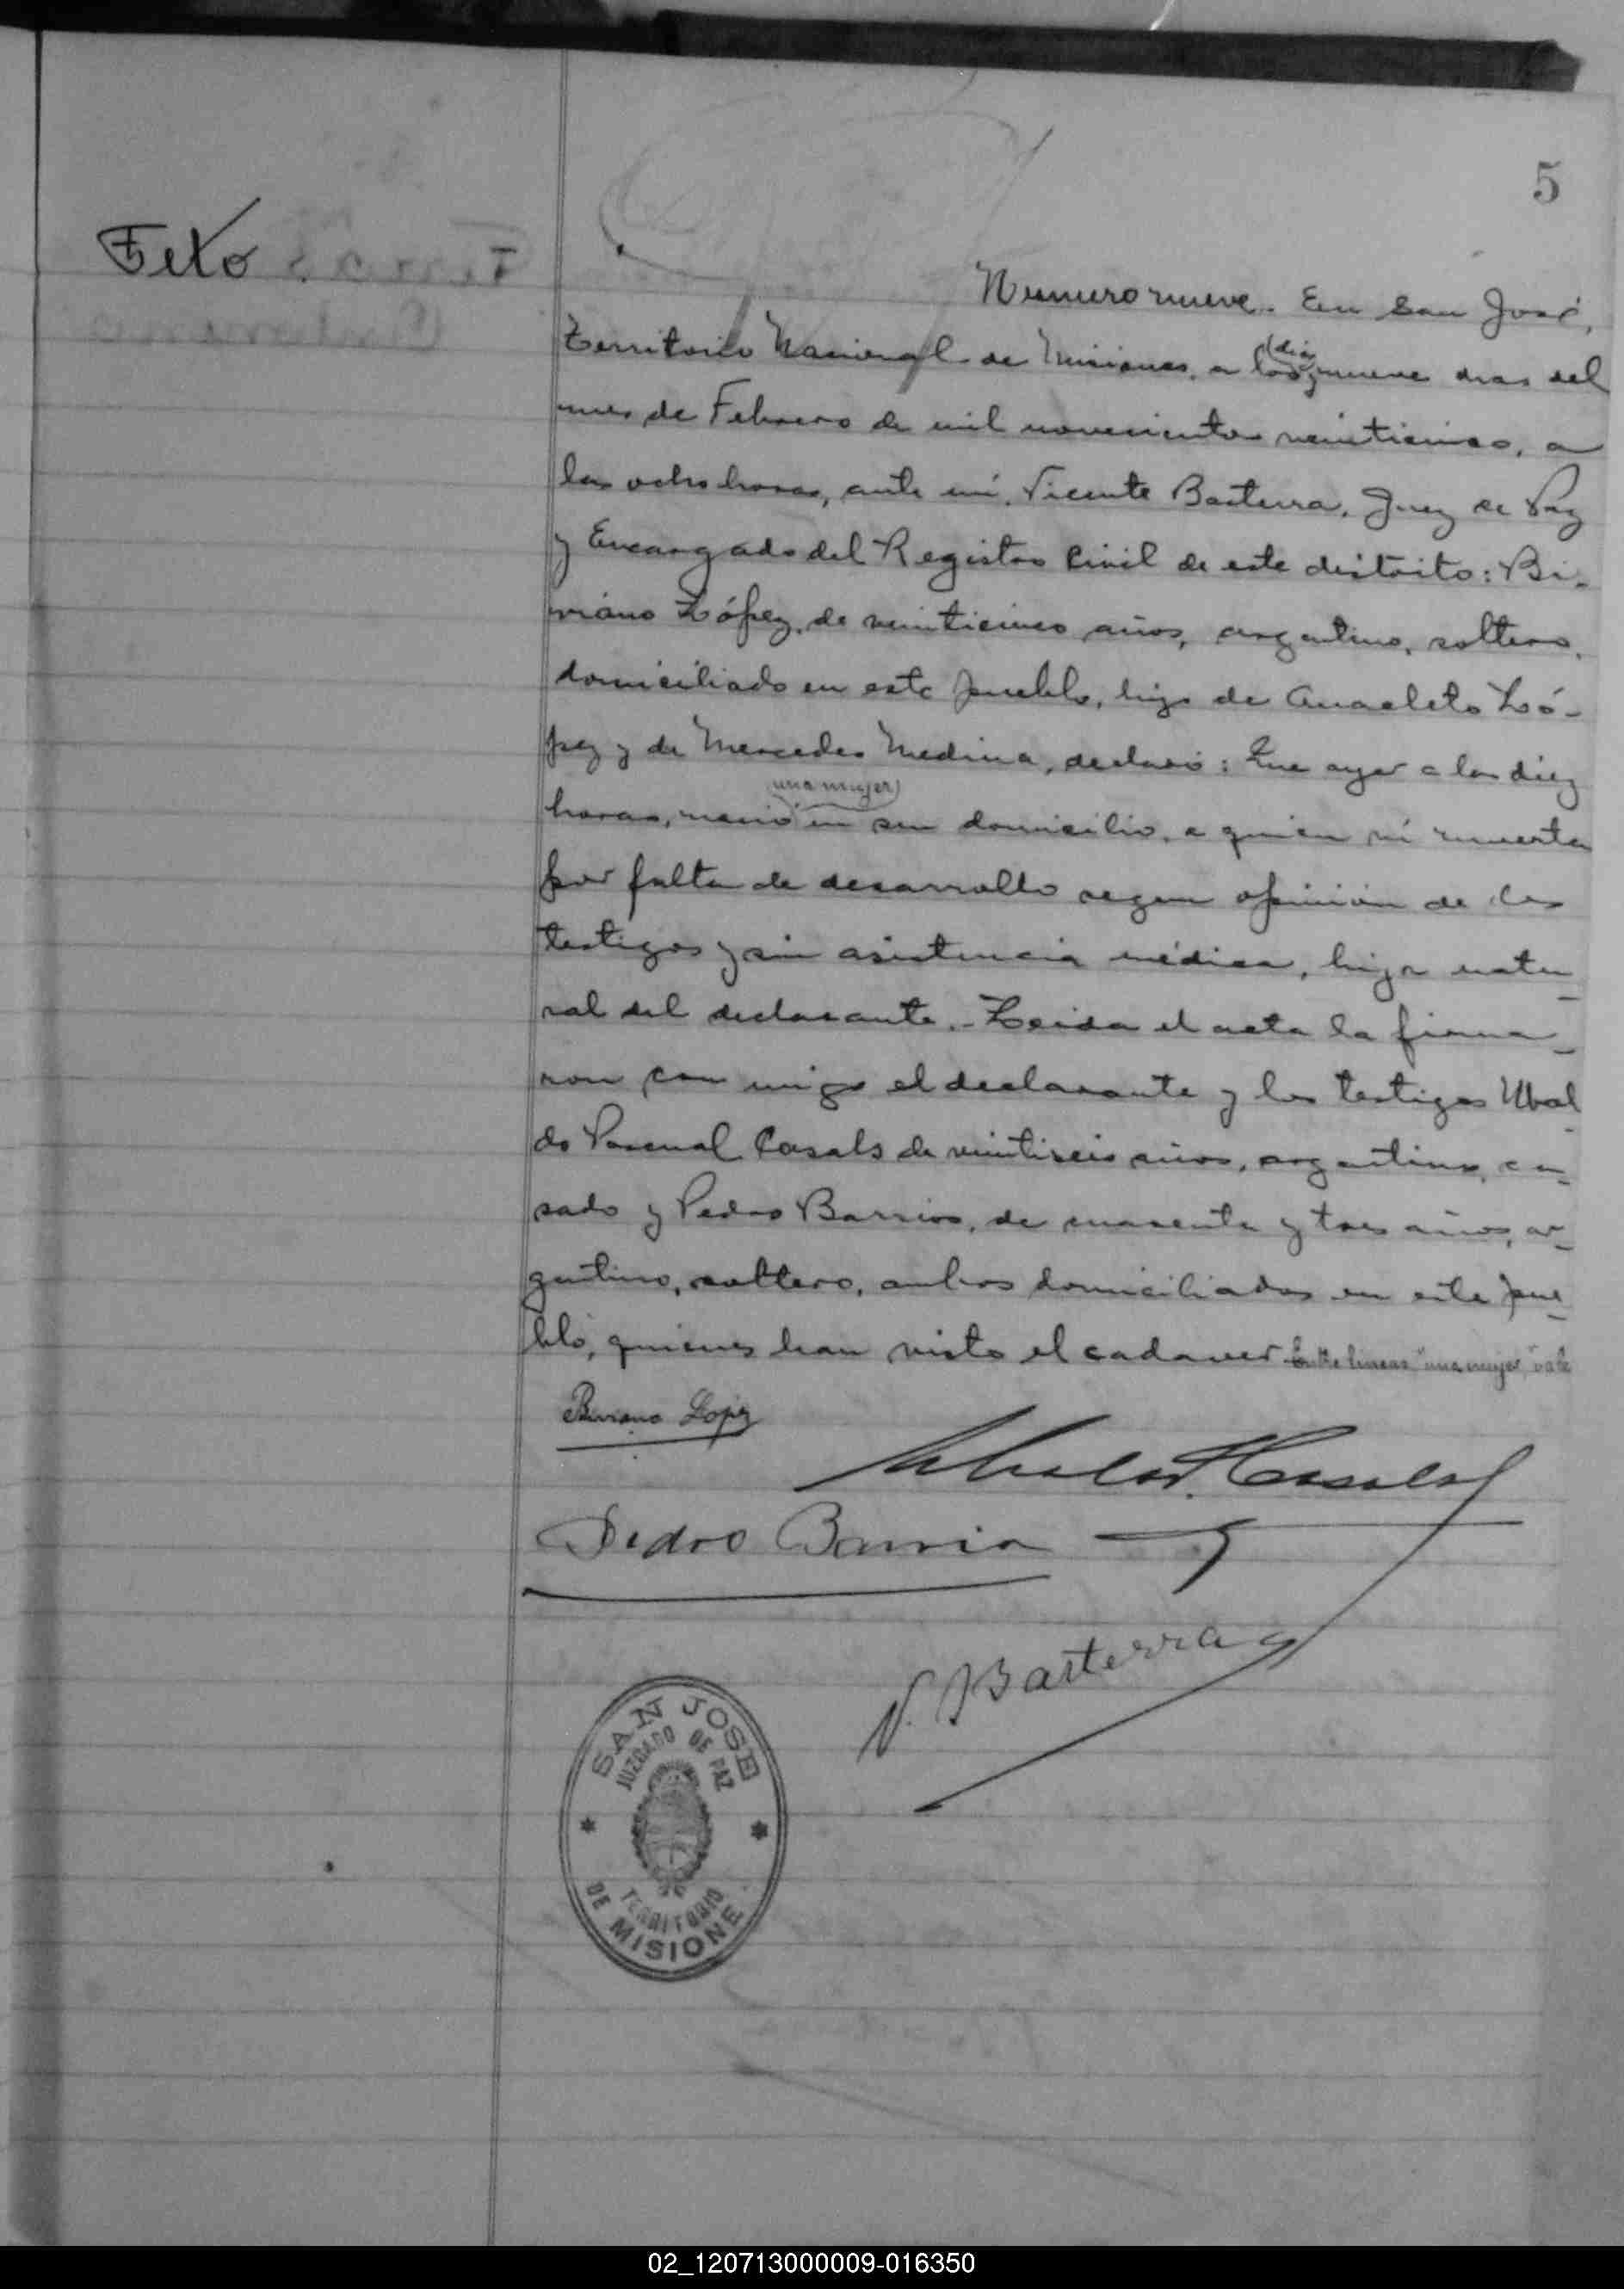 5
Feto
Numero nueve. En San José,
Territorio Nacional de Misiones, a los nueve dias del
(diez
mes de Febrero de mil novecientos veinticinco, a
las ocho horas, ante mí, Vicente Basterra, Juez de Paz
y Encargado del Registro Civil de este distrito: Bi-
viano López, de veinticinco años, argentino, soltero,
domiciliado en este pueblo, hijo de Anacleto Ló-
pez y de Mercedes Medina, declaró: Que ayer a las diez
(una mujer)
horas, nació en su domicilio, a quien ví muerta
por falta de desarrollo segun opinión de los
testigos y sin asistencia médica, hija natu_
ral del declarante.- Leida el acta la firma_
ron con migo el declarante y los testigos Ubal_
do Pascual Casals de veintiseis años, argentino, ca_
sado y Pedro Barrios, de cuarenta y tres años, ar_
gentino, soltero, ambos domiciliados en este pue_
blo, quienes han visto el cadaver. Entre lineas "una mujer" vale
Biviano Lopez
Ubaldo P. Casals
Pedro Barrio
V. Basterra
SAN JOSE
JUZGADO DE PAZ
TERRITORIO
DE MISIONE
02_120713000009-016350